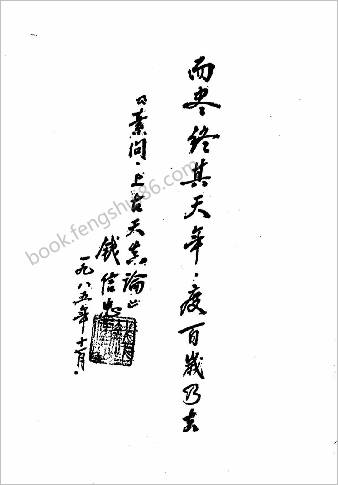 而尽终其天年·度百岁乃去
《素问·上古天真论》
钱信忠
一九八五年十一月·
book.fengshui86.com